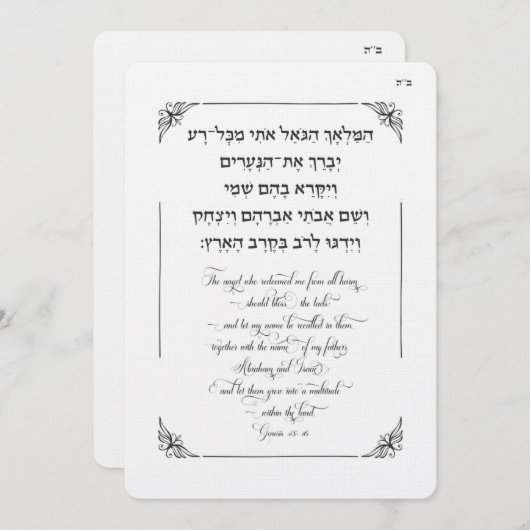 ב"ה
ב"ה
הַמַּלְאָךְ הַגֹּאֵל אֹתִי מִכָּל־רָע
יְבָרֵךְ אֶת־הַנְּעָרִים
וְיִקָּרֵא בָהֶם שְׁמִי
וְשֵׁם אֲבֹתַי אַבְרָהָם וְיִצְחָק
וְיִדְגּוּ לָרֹב בְּקֶרֶב הָאָרֶץ׃
The angel who redeemed me from all harm
should bless the lads:
and let my name be recalled in them
together with the name of my fathers
Abraham and Isaac
and let them grow into a multitude
within the land.
Genesis 48: 16